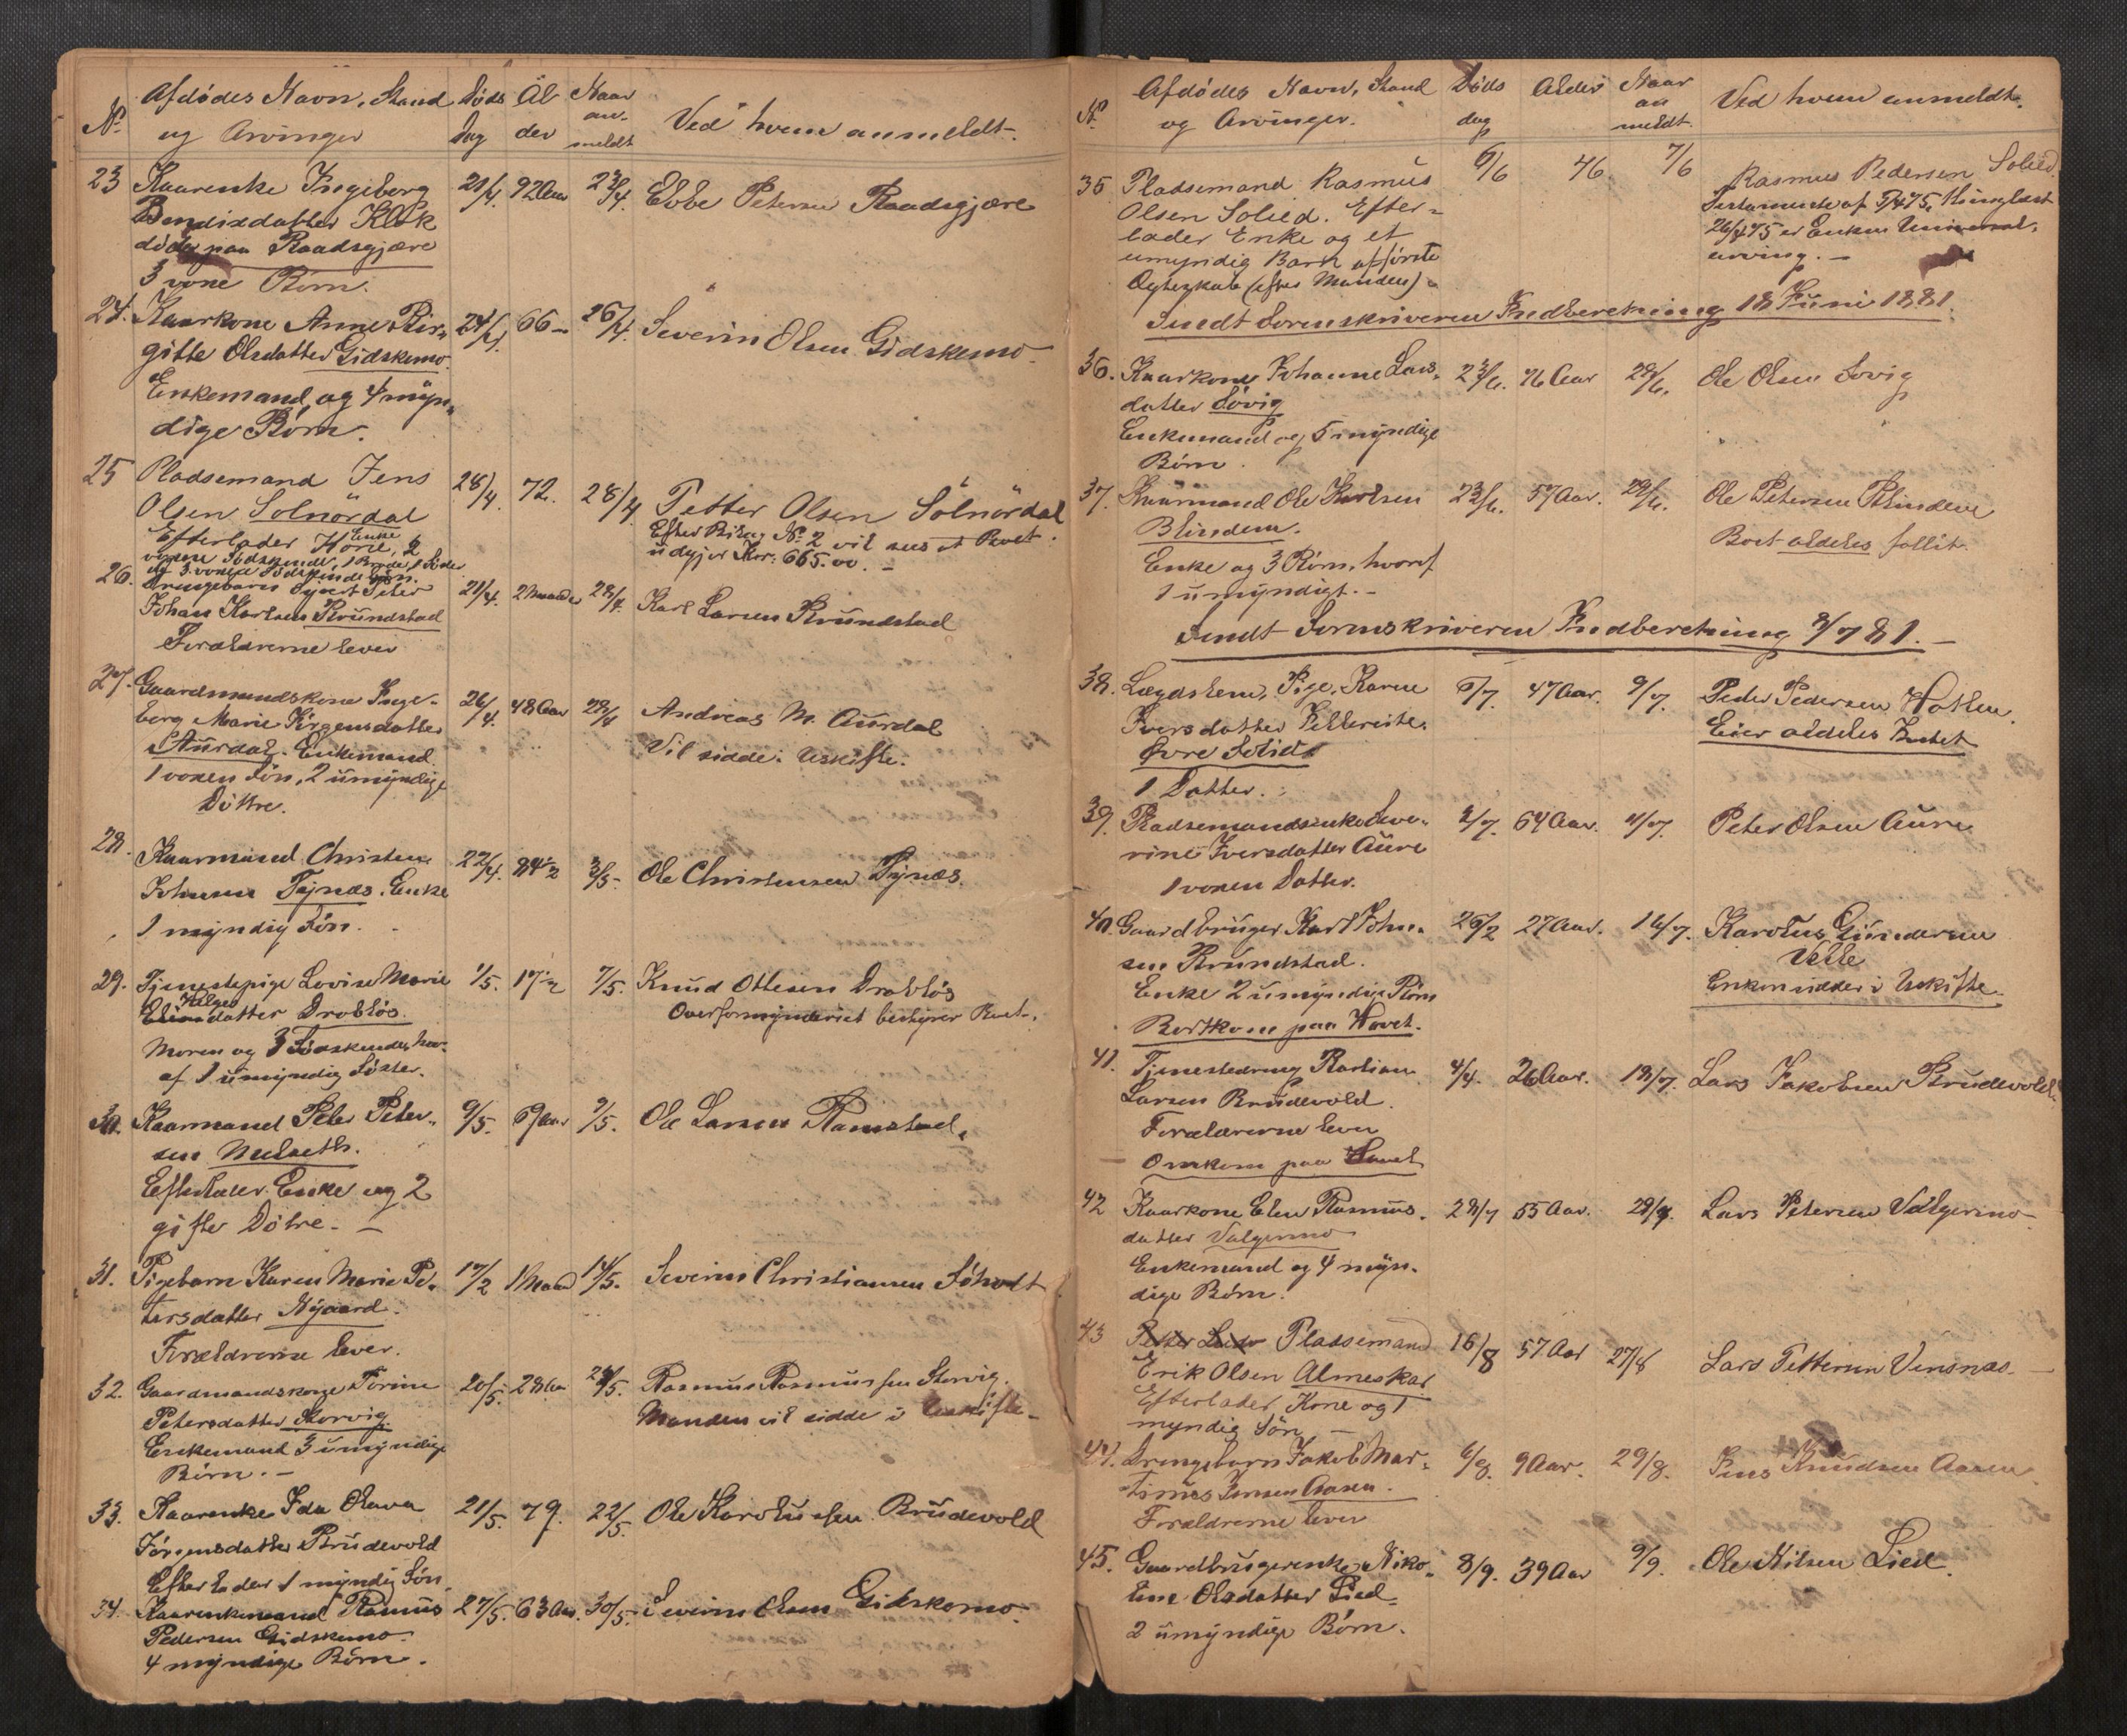 No
Afdödes Navn, Stand
og Arvinger
Döds
Dag
Al
der
Naar
an-
meldt
Ved hvem anmeldt.
23 Kaarenke Ingeberg 21/4. 92 Aar 23/4. Ebbe Petersen Raadsgjære
Bendixdatter Klok
döde paa Raadsgjære
3 voxne Börn.
24. Kaarkone Anne Bir- 24/4. 66 - 26/4. Severin Olsen Gidskemo.
gitte Olsdatter Gidskemo.
Enkemand og 4 myn-
dige Börn.
25 Pladsemand Jens 28/4. 72. 28/4. Petter Olsen Solnördal
Olsen Solnördal
Efter Bilag No 2 vil
Efterlader Kone, 2
Enke
udgjör Kr. 665.00. -
voxne Södskende, 1 Broder, 1 Söster
og 3 voxne Södskendebörn.
26. Drengebarn Sivert Peter 21/4. 2 Maaneder 28/4. Karl Larsen Brundstad
Johan Karlsen Brundstad
Forældrerne lever
27. Gaardmandskone Inge- 26/4. 48 Aar 28/4 Andreas M. Aurdal
berg Marie Jörgensdatter
Aurdal. Enkemand. Vil sidde i Uskifte.
1 voxen Sön, 2 umyndige
Döttre.
28. Kaarmand Christen 22/4. 84 1/2 3/5. Ole Christensen Tynæs.
Johnsen Tynæs. Enke
1 myndig Sön.
29. Tjenestepige Lovise Marie 1/5. 17 1/2 7/5. Knud Ottesen Drablös
Helges
datter Drablös. Overformynderiet bestyrer Boet.
Moren og 3 Södskende, hvor-
af 1 umyndig Söster.
30. Kaarmand Peter Peter- 9/5. 69 Aar 9/5. Ole Larsen Ramstad.
sen Melseth.
Efterlader Enke og 2
gifte Dötre. -
31. Pigebarn Karen Marie Pe- 17/2 1 Maaned 14/5. Severin Christiansen Söholt
tersdatter Nygaard.
Forældrerne lever.
32. Gaardmandskone Torine 20/5. 28 Aar 28/5. Rasmus Rasmussen Storvig.
Petersdatter Storvig. Manden vil sidde i Uskifte -
Enkemand 3 umyndige
Börn. -
33. Kaarenke Ida Olava 21/5. 79. 22/5. Ole Karolussen Brudevold
Jörgensdatter Brudevold
Efterlader 1 myndig Sön.
34. Kaarenkemand Rasmus 27/5. 63 Aar. 30/5. Severin Olsen Gidskemo.
Pedersen Gidskemo.
4 myndige Börn.
No
Afdödes Navn, Stand
og Arvinger.
Döds
dag
Alder
Naar
an
meldt.
Ved hvem anmeldt.
35 Pladsemand Rasmus 6/6 46 7/6 Rasmus Pedersen Solied.
Olsen Solied. Efter-
lader Enke og et
umyndig Barn af förste
Egteskab (efter Manden).
Testamente af Thinglæst
er Enken Universal-
arving. -
Sendt Sorenskriveren Indberetning 18 Juni 1881.
36. Kaarkone Johanne Lars- 23/6. 76 Aar 28/6. Ole Olsen Sovig
datter Sövig
Enkemand og 5 myndige
Börn.
37. Kaarmand Ole Karlsen 23/6. 57 Aar. 28/6. Ole Petersen Blindem
Blindem. Boet aldeles fallit.
Enke og 3 Börn, hvoraf
1 umyndigt. -
Sendt Sorenskriveren Indberetning 8/7 81. -
38. Lægdslem, Pige, Karen 6/7. 47 Aar. 9/7. Peder Pedersen Hatlen.
Iversdatter Eier aldeles Intet
Övre Solid
1 Datter.
39. Pladsemandsenke Seve- 2/7. 64 Aar. 11/7. Peter Olsen Aure
rine Iversdatter Aure
1 voxen Datter.
40. Gaardbruger Karl John- 26/2 27 Aar. 16/7. Karolus Gundersen
sen Brundstad. Velle
Enke 2 umyndige Börn Enken sidder i Uskifte.
Bortkom paa Havet.
41. Tjenestedreng Bastian 4/4. 26 Aar. 18/7. Lars Jakobsen Brudevold.
Larsen Brudevold.
Forældrerne lever
Omkom paa Havet
42 Kaarkone Elen Rasmus- 28/7 55 Aar. 28/7. Lars Petersen Valgermo
datter Valgermo
Enkemand og 4 myn-
dige Börn.
43 Pladsemand 16/8 57 Aar 27/8 Lars Pettersen Vinsnæs. -
Erik Olsen Almeskar
Efterlader Kone og 1
myndig Sön -
44. Drengebarn Jakob Mar- 6/8. 9 Aar. 29/8. Jens Knudsen Aasen
tinus Jensen Aasen.
Forældrerne lever
45. Gaardbrugerenke Niko- 8/9. 39 Aar 9/9. Ole Nilsen Lied.
line Olsdatter Lied.
2 umyndige Börn.